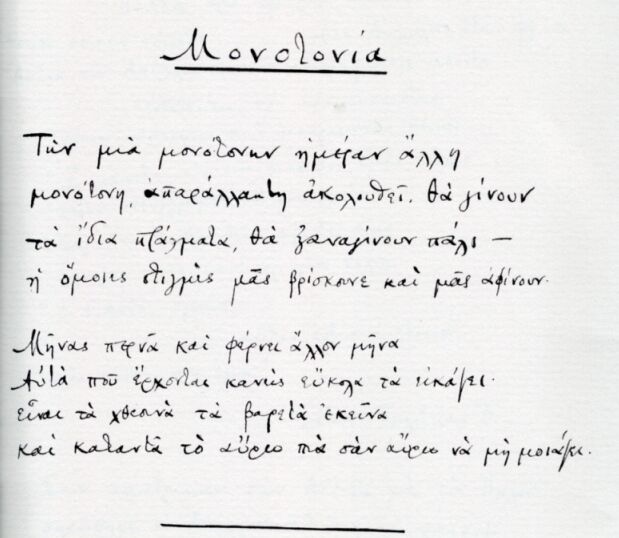 Μονοτονία
Την μια μονότονην ημέραν άλλη
μονότονη, απαράλλακτη ακολουθεί. Θα γίνουν
τα ίδια πράγματα, θα ξαναγίνουν πάλι —
η όμοιες στιγμές μας βρίσκουνε και μας αφίνουν.
Μήνας περνά και φέρνει άλλον μήνα
Αυτά που έρχονται κανείς εύκολα τα εικάζει·
είναι τα χθεσινά τα βαρετά εκείνα
και καταντά το αύριο πια σαν αύριο να μη μοιάζει.